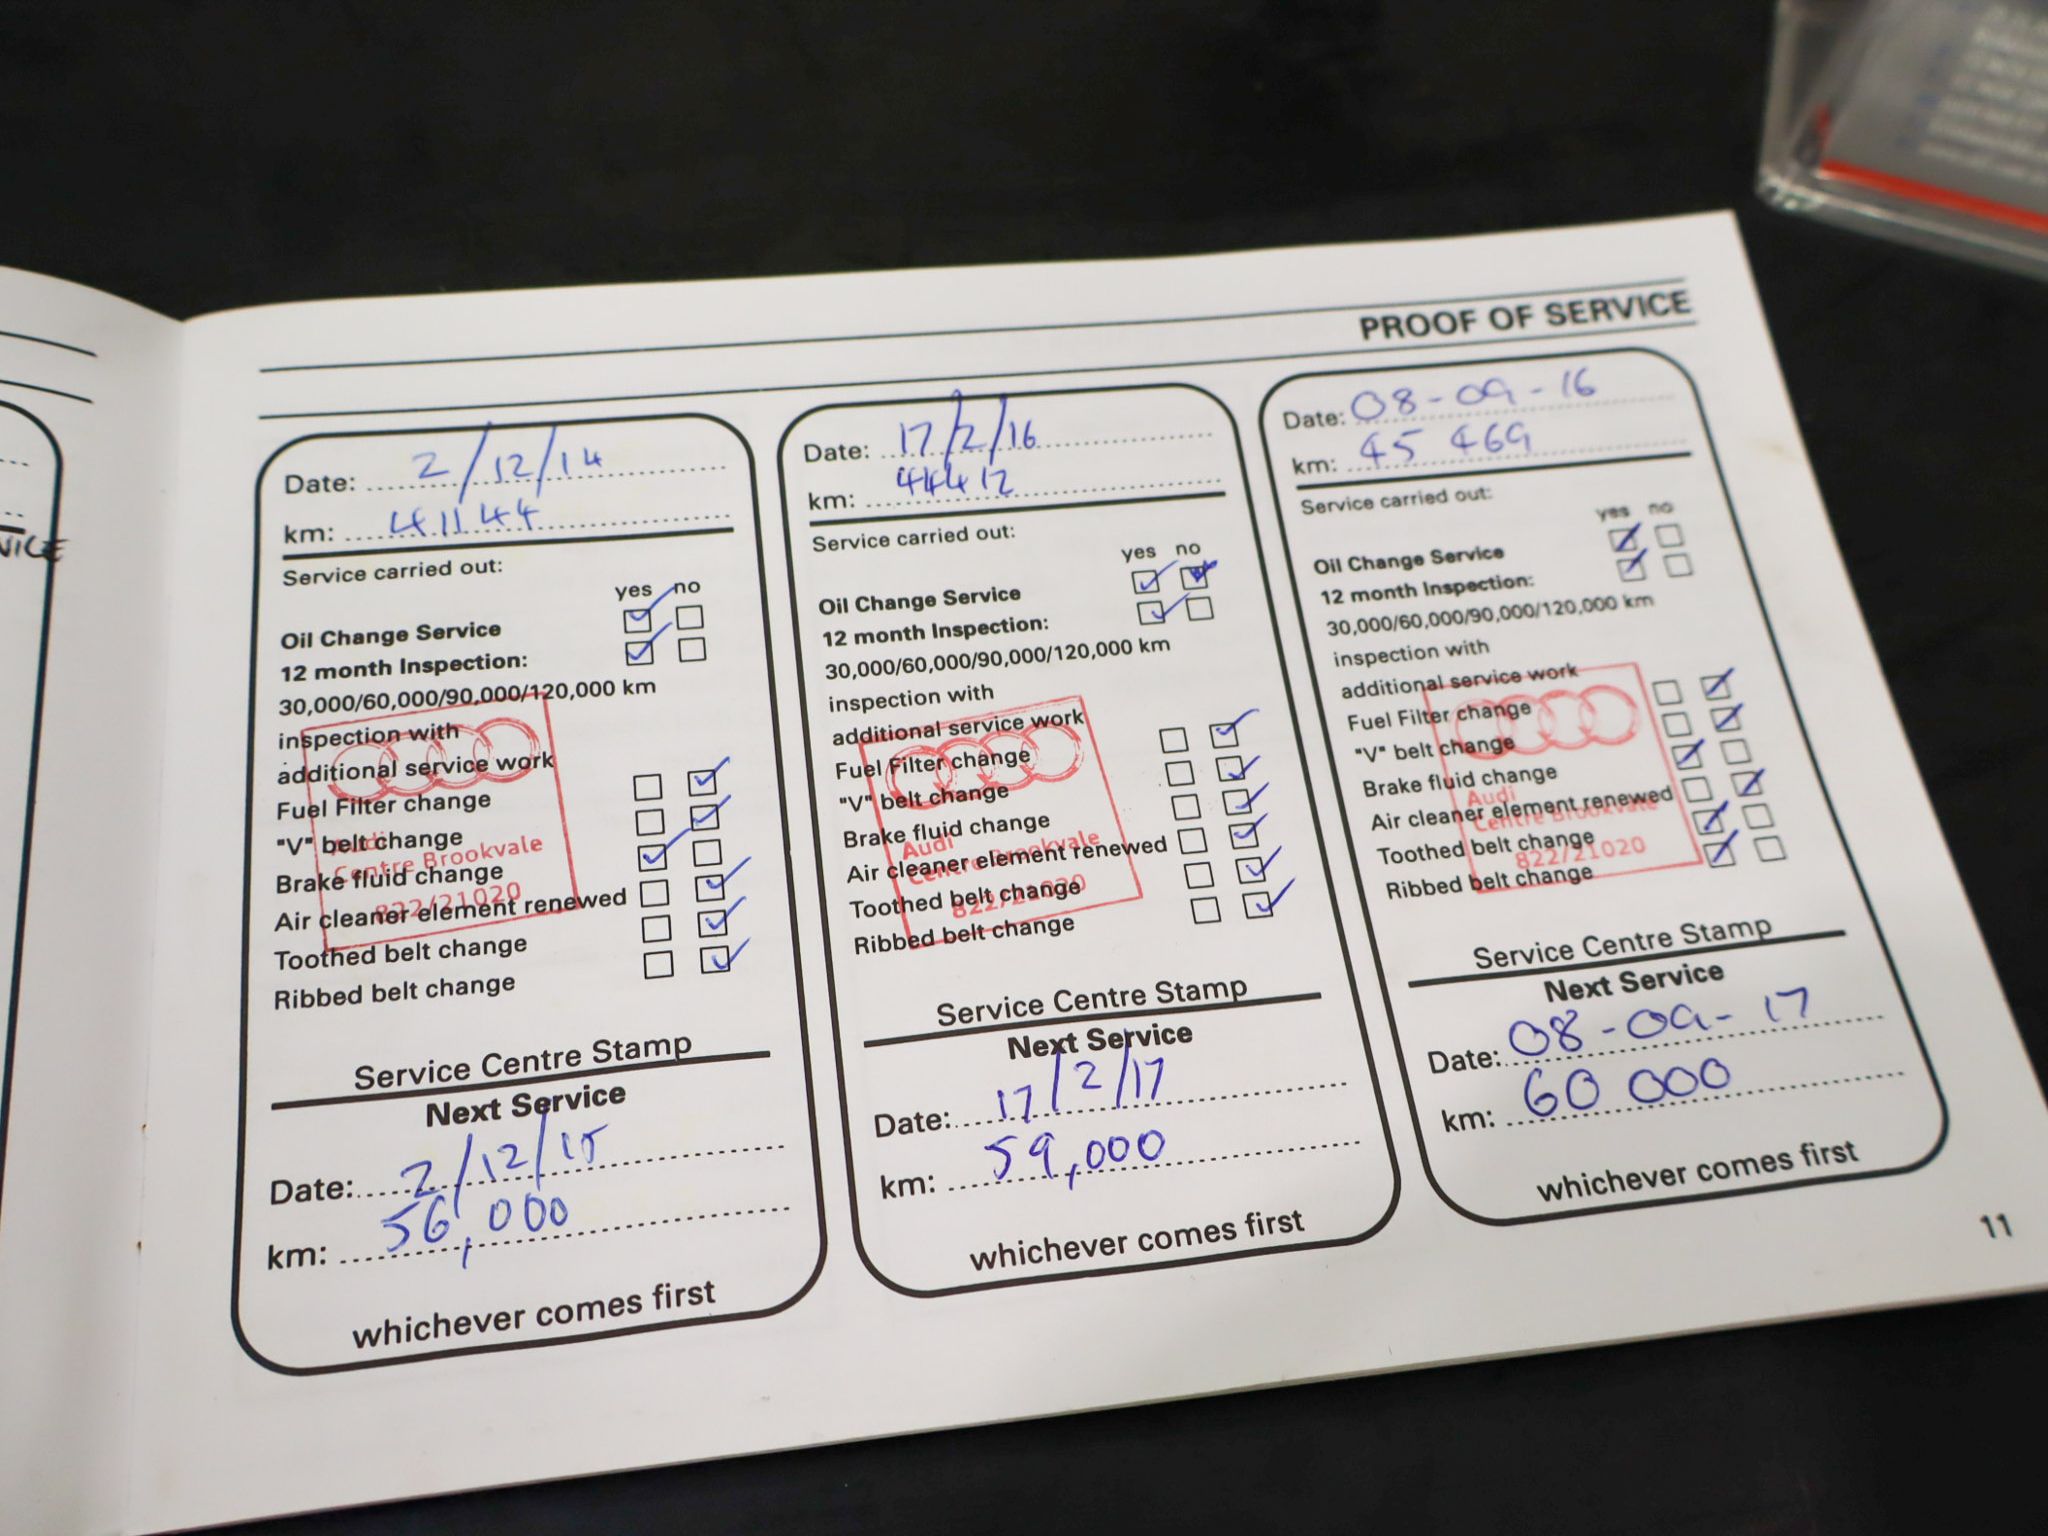 VICE
PROOF OF SERVICE
Date: 2/12/14
km: 41144
Service carried out:
yes no
Oil Change Service
12 month Inspection:
30,000/60,000/90,000/120,000 km
inspection with
additional service work
Fuel Filter change
"V" belt change
Brake fluid change
Air cleaner element renewed
Toothed belt change
Ribbed belt change
Audi
Centre Brookvale
822/21020
Service Centre Stamp
Next Service
Date: 2/12/15
km: 56,000
whichever comes first
Date: 17/2/16
km: 44412
Service carried out:
yes no
Oil Change Service
12 month Inspection:
30,000/60,000/90,000/120,000 km
inspection with
additional service work
Fuel Filter change
"V" belt change
Brake fluid change
Air cleaner element renewed
Toothed belt change
Ribbed belt change
Audi
Centre Brookvale
822/21020
Service Centre Stamp
Next Service
Date: 17/2/17
km: 59,000
whichever comes first
Date: 08-09-16
km: 45 469
Service carried out:
yes no
Oil Change Service
12 month Inspection:
30,000/60,000/90,000/120,000 km
inspection with
additional service work
Fuel Filter change
"V" belt change
Brake fluid change
Air cleaner element renewed
Toothed belt change
Ribbed belt change
Audi
Centre Brookvale
822/21020
Service Centre Stamp
Next Service
Date: 08-09-17
km: 60 000
whichever comes first
11